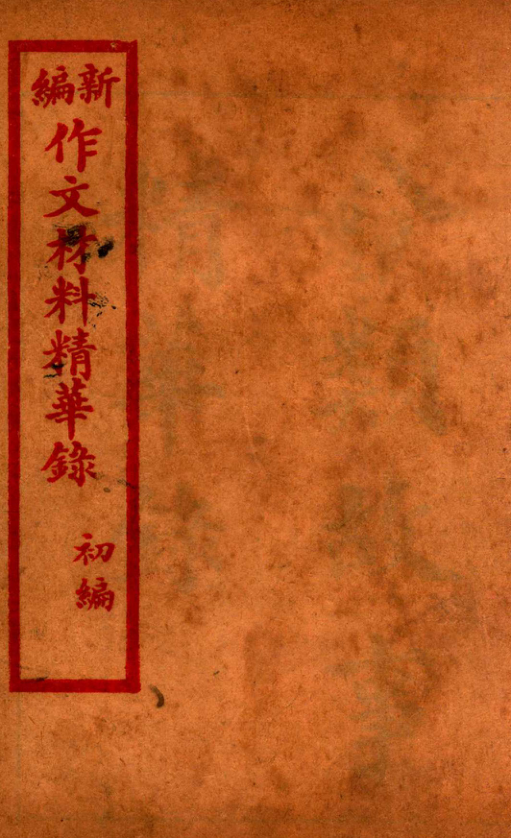 新編
作文材料精華錄
初編